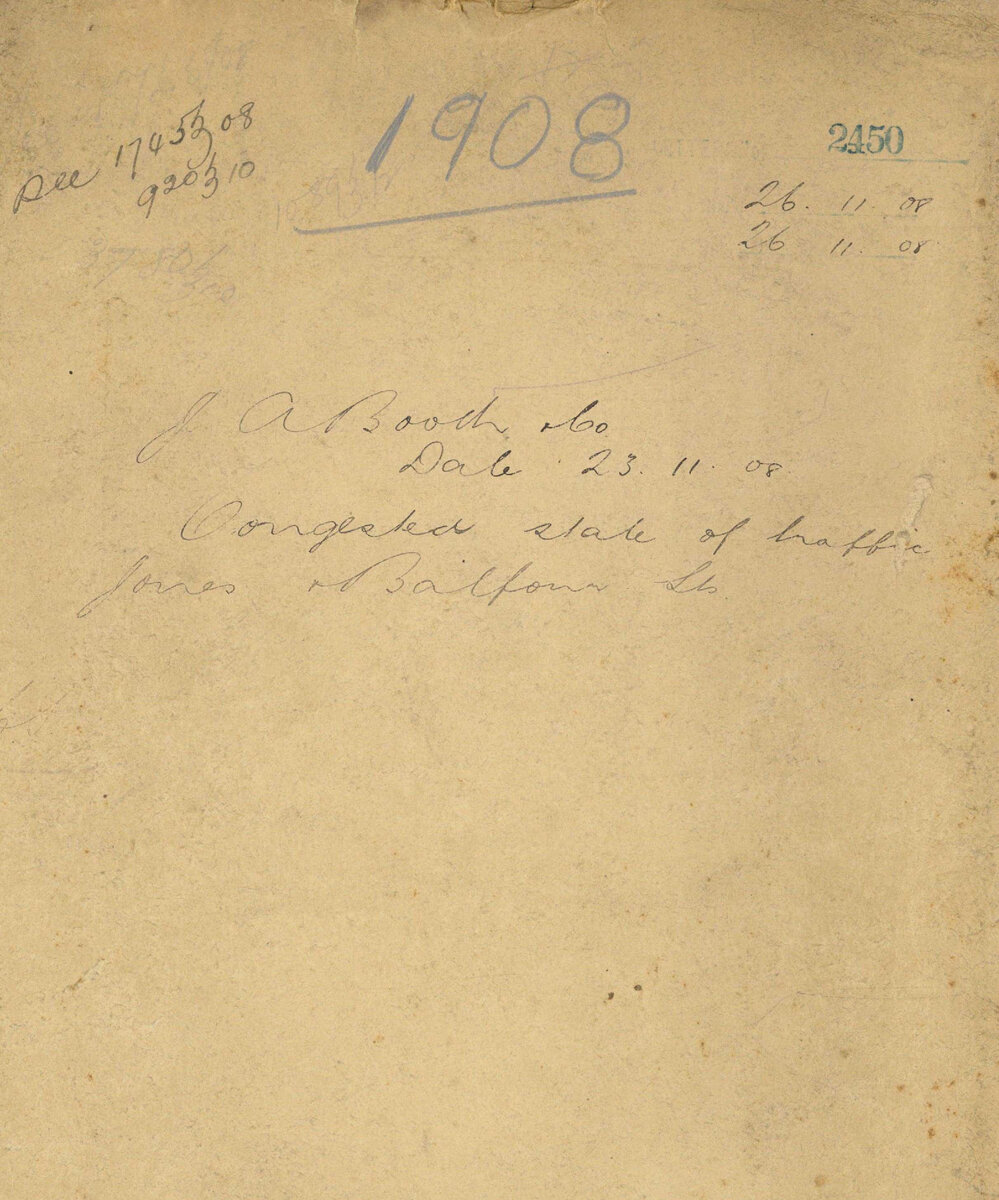 1908
2450
See 1745/3 08
920/3 10
26. 11. 08
26 11. 08
J A Booth & Co
Date 23. 11. 08
Congested state of traffic
Jones & Balfour Sts.